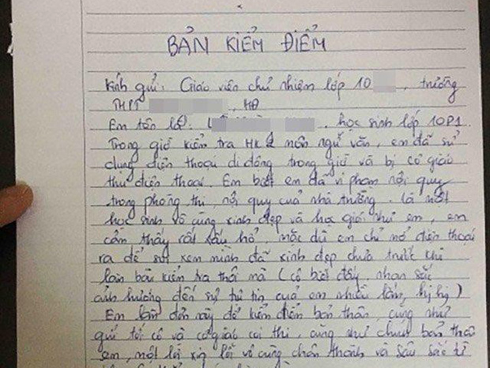 BẢN KIỂM ĐIỂM
Kính gửi: Giáo viên chủ nhiệm lớp 10, trường
THPT, HN
Em tên là:, học sinh lớp 10P1
Trong giờ kiểm tra HK 2 môn ngữ văn, em đã sử
dụng điện thoại di động trong giờ và bị cô giáo
thu điện thoại. Em biết em đã vi phạm nội quy
trong phòng thi, nội quy của nhà trường. Là một
học sinh vô cùng xinh đẹp và học giỏi như em, em
cảm thấy rất xấu hổ, mặc dù em chỉ mở điện thoại
ra để soi xem mình đã xinh đẹp chưa trước khi
làm bài kiểm tra thôi mà (cô biết đấy, nhan sắc
ảnh hưởng đến sự tự tin của em nhiều lắm, hị hị)
Em viết đơn này để kiểm điểm bản thân, cũng như
gửi tới cô và cô giáo coi thi, cũng như chính bản thân
em, một lời xin lỗi vô cùng chân thành và sâu sắc từ